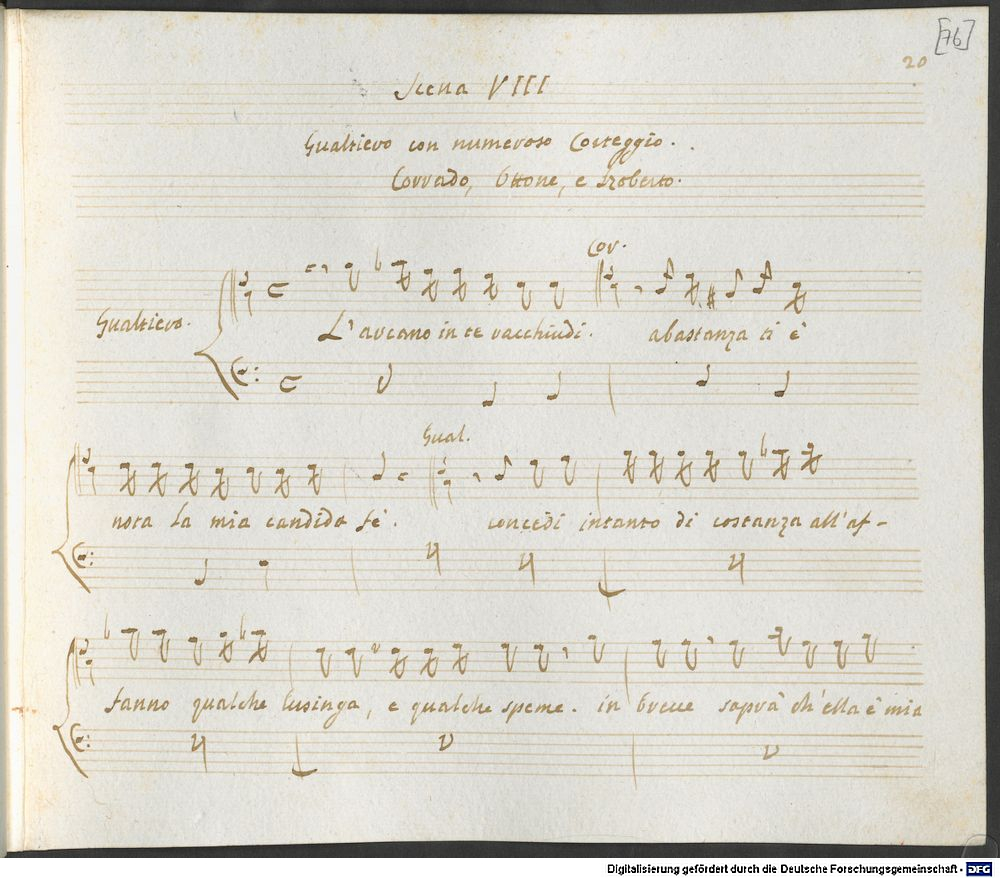 [76]
20
Scena VIII
Gualtiero con numeroso Corteggio.
Corrado, Ottone, e Roberto.
Cor.
Gualtiero.
L'arcano in te racchiudi. abastanza ti è
Gual.
nota la mia candida fè. concedi intanto di costanza all'af-
fanno qualche lusinga, e qualche speme. in breve saprà ch'ella è mia
Digitalisierung gefördert durch die Deutsche Forschungsgemeinschaft - DFG